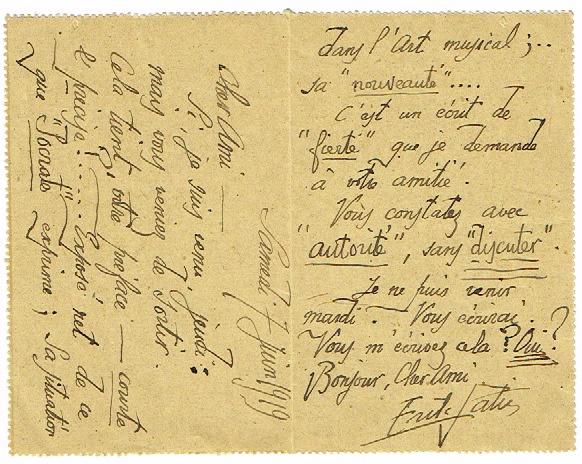 Samedi 7 Juin 1919
Cher Ami —
Si, je suis venu jeudi :
mais vous veniez de sortir.
Cela tient, votre préface — courte
& précise : ..... Exposé net de ce
que "Socrate" exprime ; Sa situation
dans l'Art musical ; ..
sa "nouveauté" ....
C'est un écrit de
"fierté" que je demande
à votre amitié.
Vous constatez avec
"autorité", sans "discuter".
Je ne puis venir
mardi. Vous écrirai.
Vous m'écrivez cela ? Oui ?
Bonjour, Cher Ami
Erik Satie